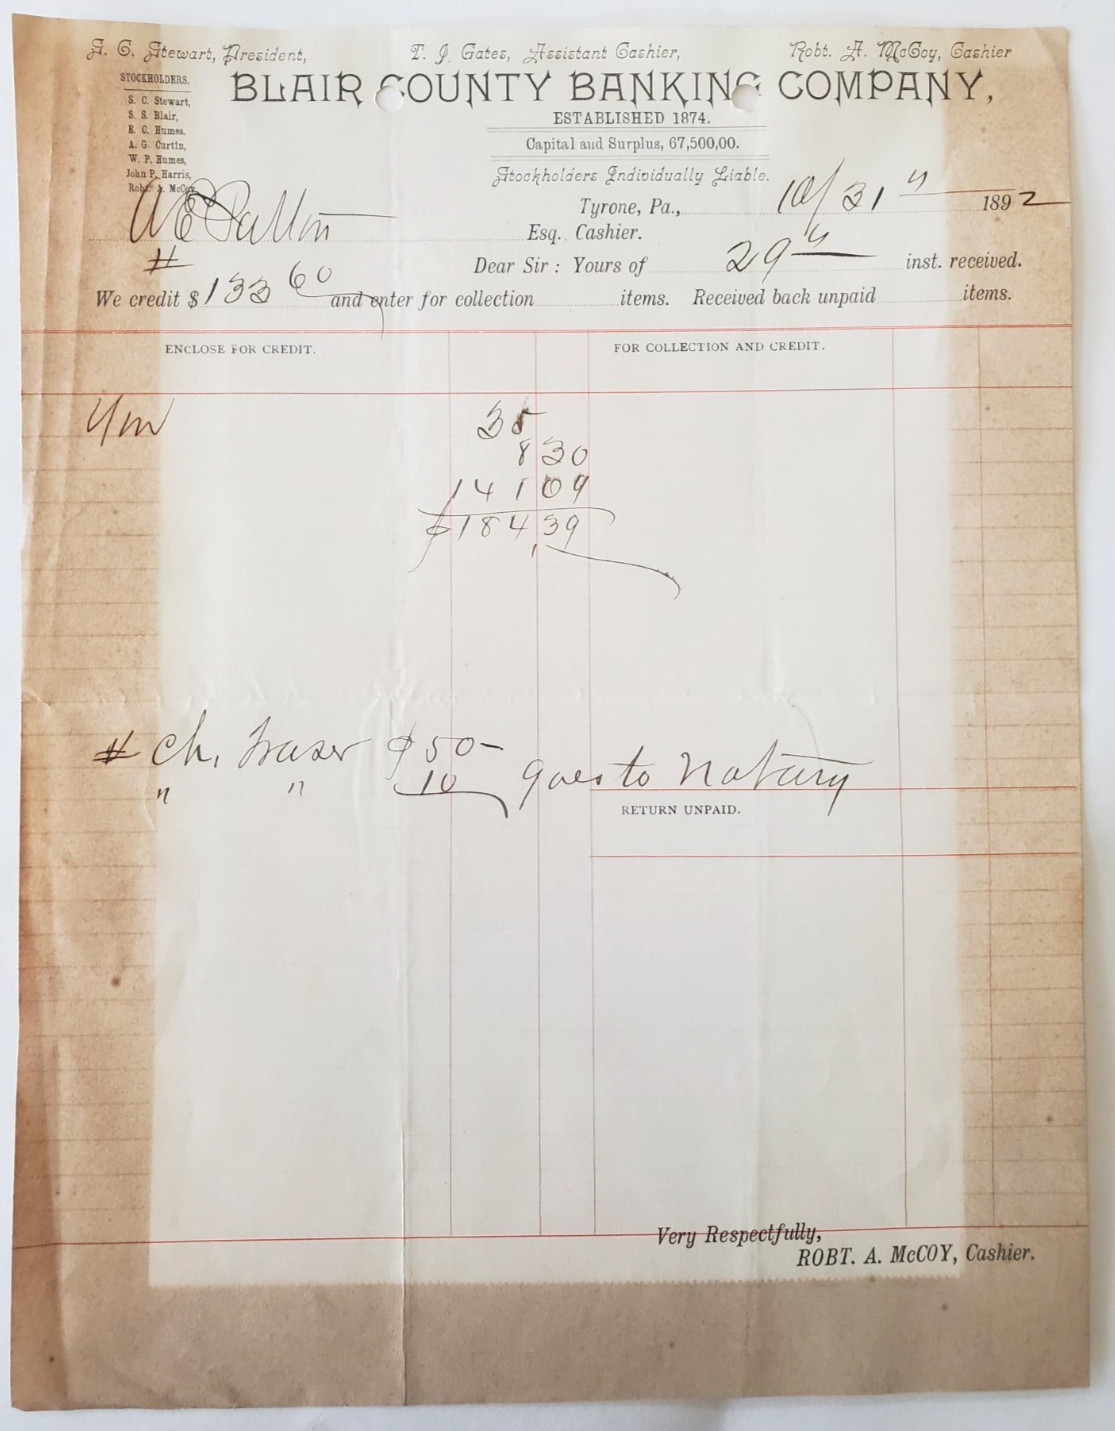 S. C. Stewart, President, T. J. Gates, Assistant Cashier, Robt. A. McCoy, Cashier
STOCKHOLDERS.
S. C. Stewart,
S. S. Blair,
E. C. Humes,
A. G. Curtin,
W. P. Humes,
John P. Harris,
Robt. A. McCoy
BLAIR COUNTY BANKING COMPANY,
ESTABLISHED 1874.
Capital and Surplus, 67,500,00.
Stockholders Individually Liable.
Tyrone, Pa., 10/31 1892
W E Patton Esq. Cashier.
Dear Sir : Yours of 29 inst. received.
# We credit $ 133 60 and enter for collection items. Received back unpaid items.
ENCLOSE FOR CREDIT. FOR COLLECTION AND CREDIT.
35
8 30
141 09
$184 39
# Ch. Fraser $50-
" " 10 goes to Notary
RETURN UNPAID.
Very Respectfully,
ROBT. A. McCOY, Cashier.